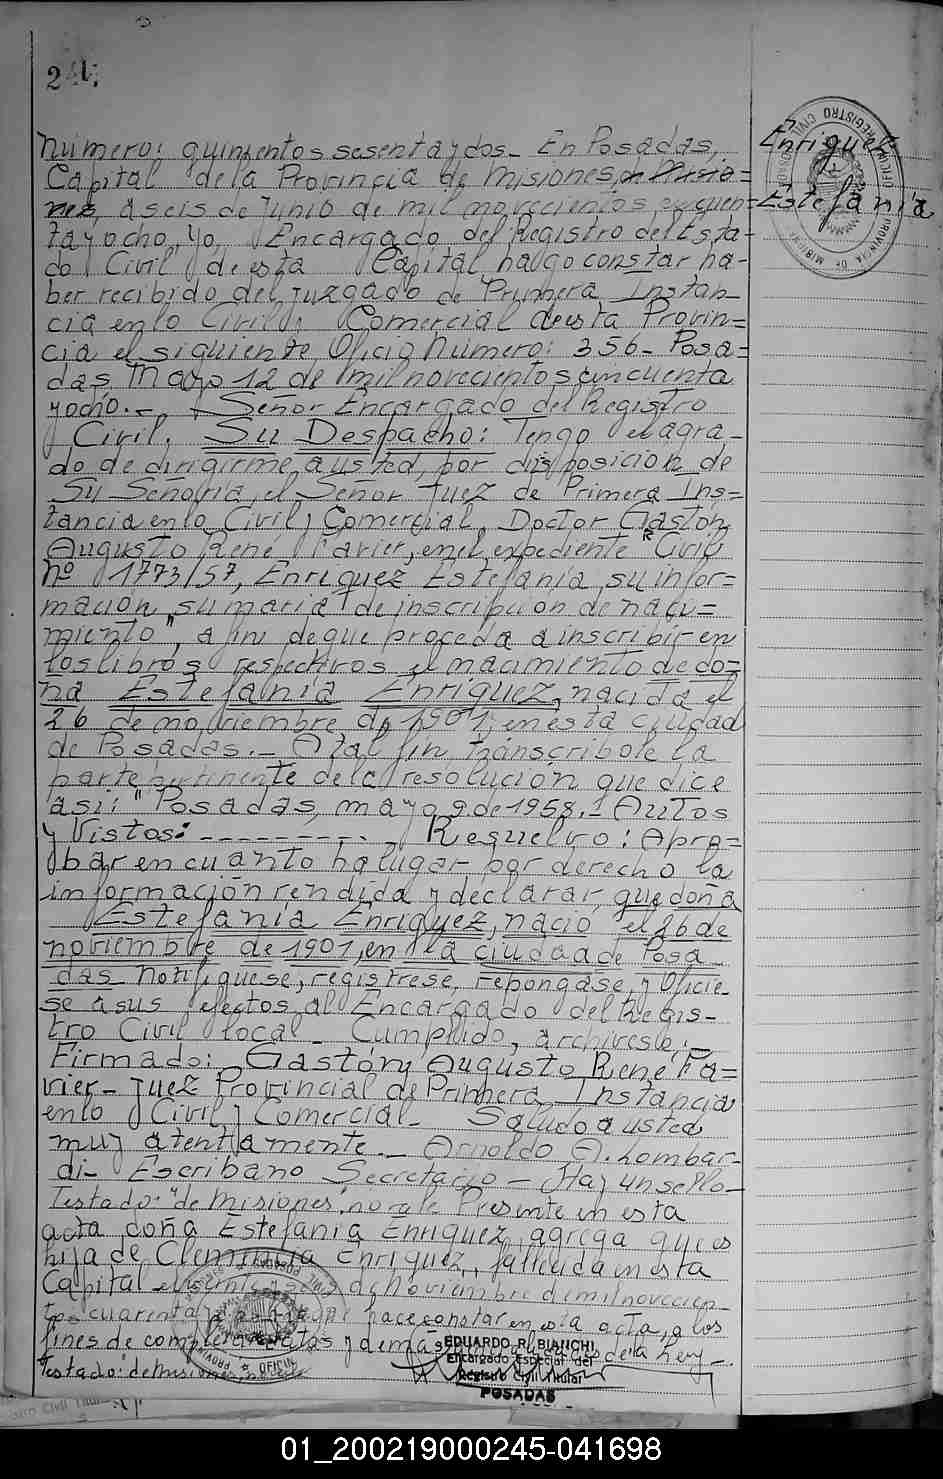 24
Número: quinientos sesenta y dos_ En Posadas,
Enriquez
Estefanía
Capital de la Provincia de Misiones, en Misio=
nes, a seis de Junio de mil novecientos cincuen=
ta y ocho, yo, Encargado del Registro del Esta-
do Civil de esta Capital, hago constar, ha-
ber recibido del Juzgado de Primera Instan_
cia en lo Civil y Comercial de esta Provin=
cia el siguiente Oficio Número: 356_ Posa=
das, Mayo 12 de mil novecientos cincuenta
y ocho._ Señor Encargado del Registro
Civil. Su Despacho: Tengo el agra_
do de dirigirme a usted, por disposición de
Su Señoría, el Señor Juez de Primera Ins=
tancia en lo Civil y Comercial, Doctor Gastón
Augusto René Favier, en el expediente "Civil
nº 1773/57, Enriquez Estefanía, su infor=
mación sumaria de inscripción de naci=
miento", a fin de que proceda a inscribir en
los libros respectivos el nacimiento de do=
ña Estefanía Enriquez, nacida el
26 de noviembre de 1901, en esta ciudad
de Posadas._ A tal fin, transcríbole la
parte pertinente de la resolución que dice
así: "Posadas, mayo 9 de 1958._ Autos
y Vistos: ---------- Resuelvo: Apro=
bar en cuanto ha lugar por derecho la
información rendida y declarar, que doña
Estefanía Enriquez, nació el 26 de
noviembre de 1901, en la ciudad de Posa_
das Notifíquese, regístrese, repóngase, y Ofície_
se a sus efectos al Encargado del Regis_
tro Civil local_ Cumplido, archívese._
Firmado: Gastón Augusto René Fa=
vier_ Juez Provincial de Primera Instancia
en lo Civil y Comercial_ Saludo a usted
muy atentamente._ Arnoldo A. Lombar_
di_ Escribano Secretario_ Hay un sello_
Testado: "de Misiones, no vale Presente en esta
acta, doña Estefanía Enriquez, agrega que es
hija de Clementina Enriquez, fallecida en esta
Capital el de Noviembre de mil novecien_
tos cuarenta y hace constar en esta acta, a los
fines de y demás de la Ley_
Testado: de Misiones,
EDUARDO R. BIANCHI
Encargado Especial del
Registro Civil Titular
POSADAS
01_200219000245-041698